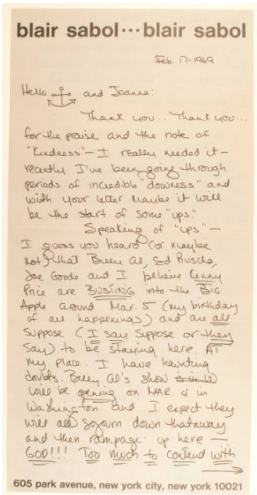 blair sabol ··· blair sabol
Feb. 17-1969
Hello and Joanna:
Thank you... Thank you...
for the praise and the note of
"kindness"- I really needed it-
recently I've been going through
periods of incredible "downess" and
with your letter maybe it will
be the start of some "ups"
Speaking of "ups"-
I guess you heard (or maybe
not) that Billy Al, Ed Ruscha,
Joe Goode and I believe
Price are BUSTING into the BIG
Apple around Mar. 5 (my birthday
of all happenings) and are all
suppose (I say suppose or they
say) to be staying here AT
my place. I have haunting
doubts. Billy Al's show
will be opening on MAR 4 in
Washington and I expect they
will all sojourn down thataway
and then rampage up here-
GOD!!! Too much to contend with
605 park avenue, new york city, new york 10021